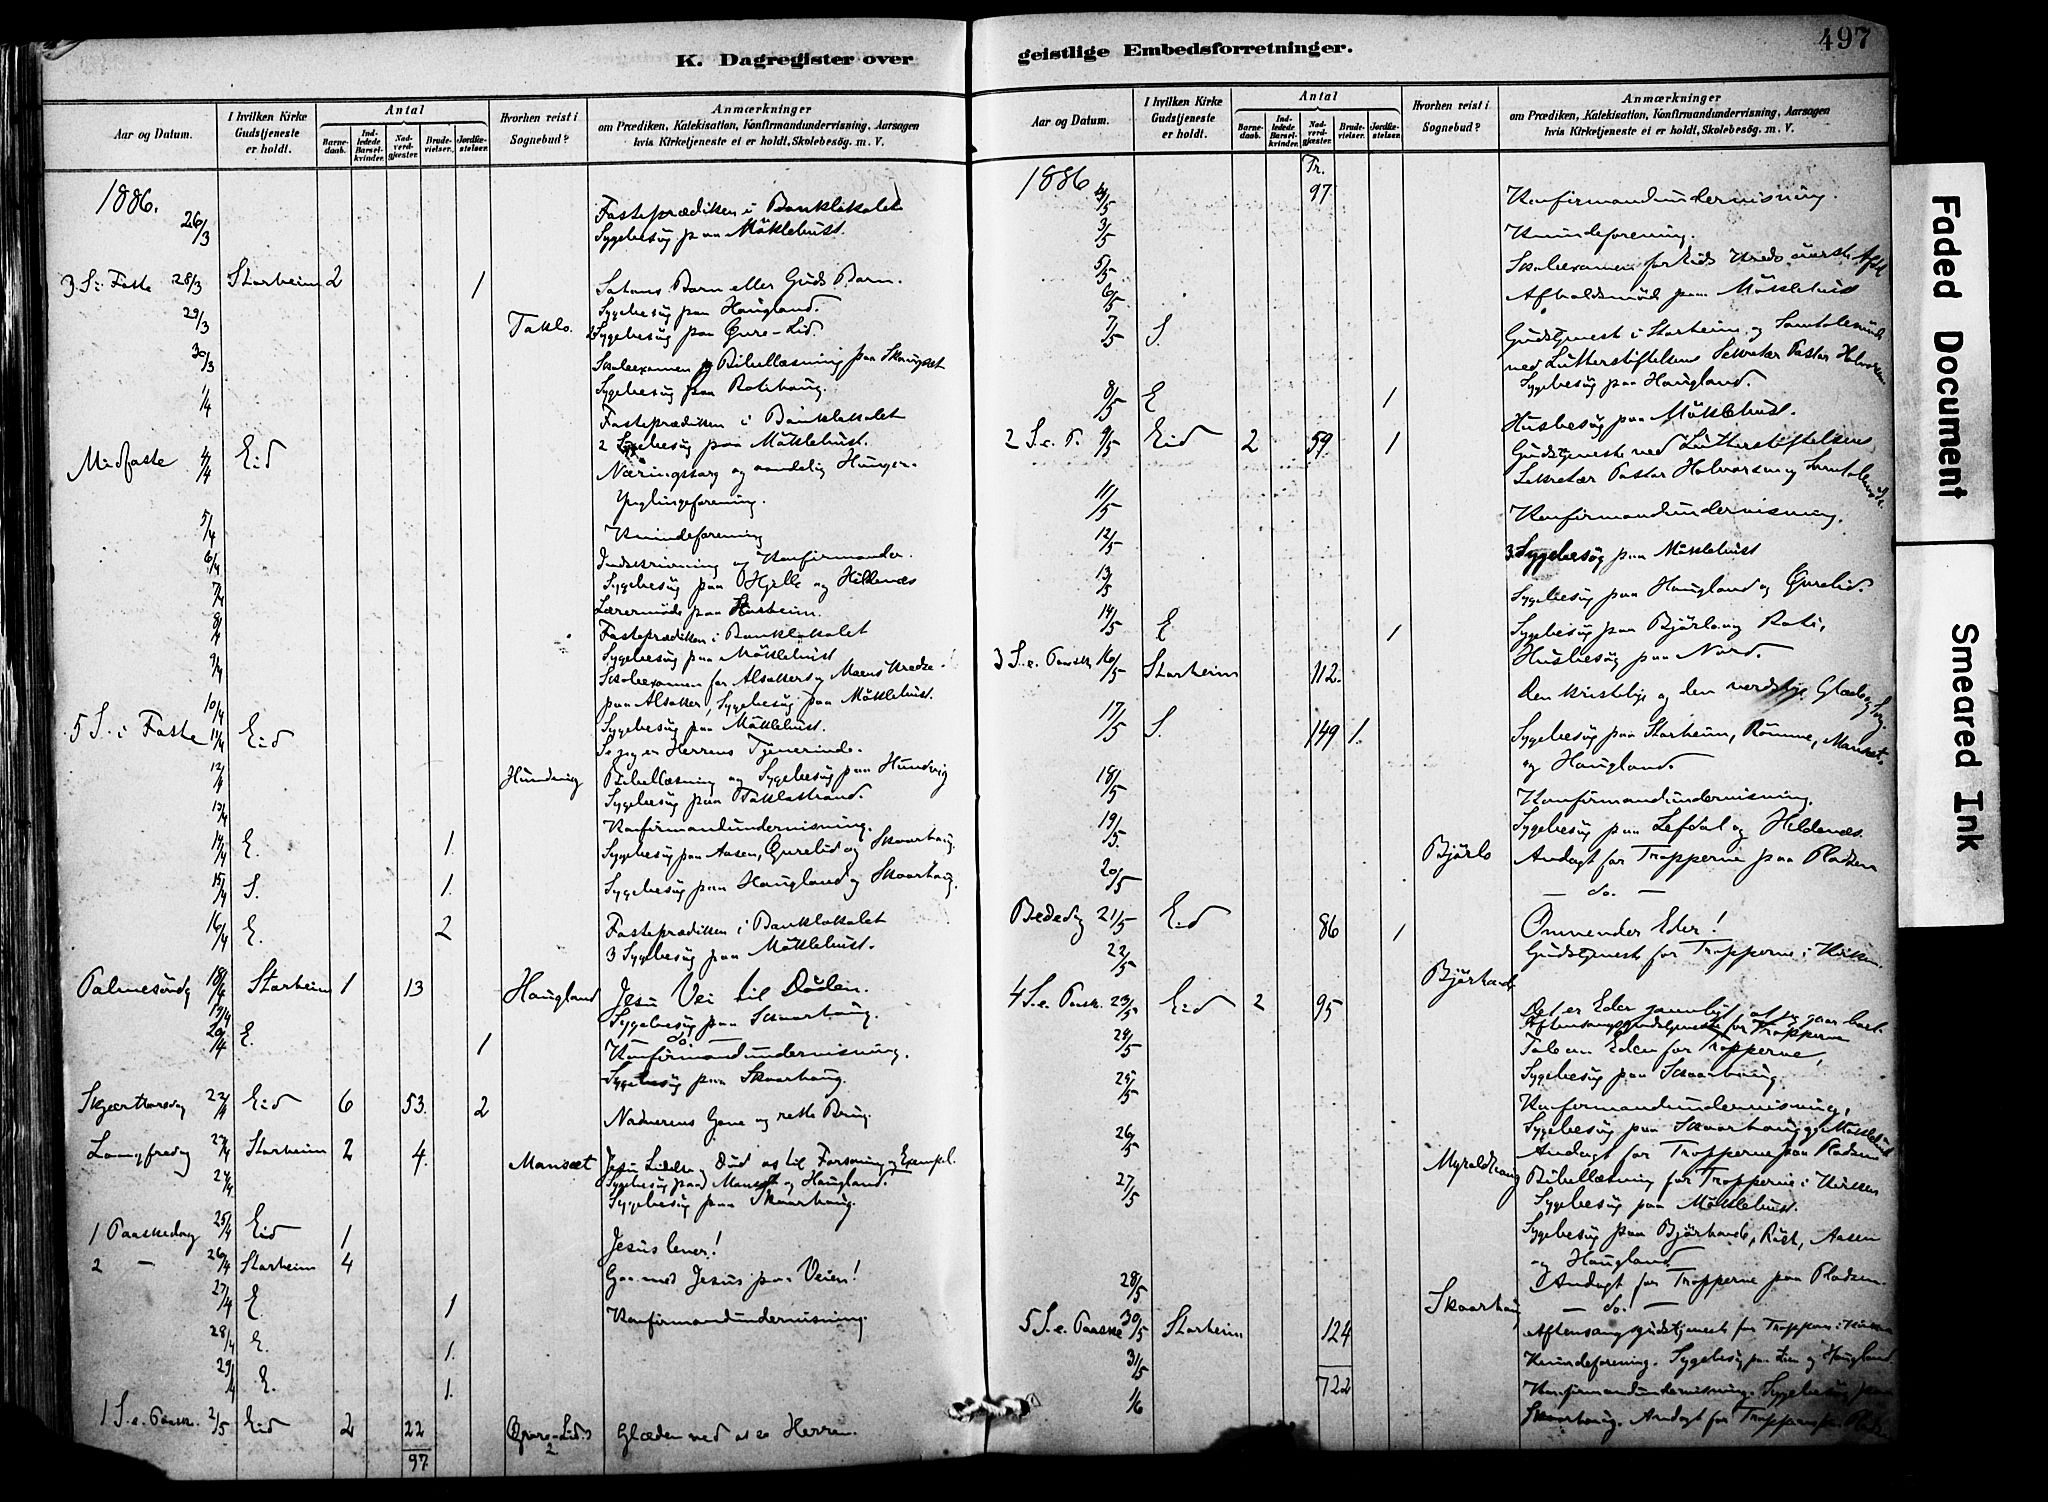 497
K. Dagregister over
geistlige Embedsforretninger.
Aar og Datum.
I hvilken Kirke Gudstjeneste er holdt.
Antal
Barnedaab.
Indledede Barselkvinder.
Nadverdgjæster.
Brudevielser.
Jordfæstelser.
Hvorhen reist i Sognebud?
Anmærkninger
om Prædiken, Katekisation, Konfirmandundervisning, Aarsagen
hvis Kirketjeneste ei er holdt, Skolebesög. m. V.
1886.
26/3 Fasteprædiken i Banklokalet
Sygebesög paa Möklebust.
3 S. i Faste 28/3 Starheim 2 1 Satans Barn eller Guds Barn.
Sygebesög paa Haugland.
29/3 Taklo. Sygebesög paa Øvre-Lid.
30/3 Skoleexamen og Bibellæsning paa
1/4 Sygebesög paa
Fasteprædiken i Banklokalet
2 Sygebesög paa Möklebust.
Midfaste 4/4 Eid Næringssorg og aandelig Hunger.
Ynglingeforening.
5/4 Kvindeforening
6/4 Indskrivning og Konfirmander.
7/4 Sygebesög paa Hjelle og Hildenæs
Lærermöde paa Starheim.
8/4 Fasteprædiken i Banklokalet
Sygebesög paa Möklebust
9/4 Skoleexamen for
paa Alsaker, Sygebesög paa Möklebust.
10/4 Sygebesög paa Möklebust.
5 S. i Faste 11/4 Eid Se jeg er Herrens Tjenerinde.
12/4 Hundvig Bibellæsning og Sygebesög paa Hundvig
Sygebesög paa Taklostrand.
13/4 Konfirmandundervisning.
14/4 E. 1. Sygebesög paa Aasen, Øvrelid og Skaarhaug.
15/4 S. 1. Sygebesög paa Haugland og Skaarhaug.
16/4 E. 2 Fasteprædiken i Banklokalet
3 Sygebesög paa Möklebust.
Palmesöndg 18/4 Starheim 1 13 Haugland Jesu Vei til Döden.
19/4 Sygebesög paa Skaarhaug.
20/4 E. 1 Konfirmandundervisning.
Sygebesög paa Skaarhaug.
Skjærthorsdag 22/4 Eid 6 53. 2 Nadverens Gave og rette Brug.
Langfredag 23/4 Starheim 2 4. Mansæt Jesu Lidelse og Död os til Forsoning og Exempel.
Sygebesög paa Mansæt og Haugland.
24/4 Sygebesög paa Skaarhaug.
1 Paaskedag 25/4 Eid 1 Jesus lever!
2 — 26/4 Starheim 4 Gaa med Jesus paa Veien!
27/4 E. 1 Konfirmandundervisning.
28/4 E. 1.
29/4 E. 1.
1 S. e. Paask. 2/5 Eid 2 22 Øvre-Lid. 2 Glæden ved at se Herren.
97.
Aar og Datum.
I hvilken Kirke Gudstjeneste er holdt.
Antal
Barnedaab.
Indledede Barselkvinder.
Nadverdgjæster.
Brudevielser.
Jordfæstelser.
Hvorhen reist i Sognebud?
Anmærkninger
om Prædiken, Katekisation, Konfirmandundervisning, Aarsagen
hvis Kirketjeneste ei er holdt, Skolebesög. m. V.
1886 Tr. 97 Konfirmandundervisning.
3/5 Kvindeforening.
5/5 Skoleexamen for Eids Kreds
6/5 Afholdsmöde paa Möklebust
7/5 S. Gudstjeneste i Starheim og Samtalemöde
ved Lutherstiftelsens Sekretær Pastor Halvorsen
Sygebesög paa Haugland.
8/5 E 1 Husbesög paa Möklebust.
2 S. e. P. 9/5 Eid 2 59. 1 Gudstjeneste ved Lutherstiftelsens
Sekretær Pastor Halvorsen og Samtalemöde.
11/5 Konfirmandundervisning.
12/5 3 Sygebesög paa Möklebust
13/5 Sygebesög paa Haugland og Øvrelid.
14/5 E 1 Sygebesög paa Bjørlo og
Husbesög paa Nord.
3 S. e. Paask. 16/5 Starheim 112. Den kristelige og den verdslige Glæde og Sorg.
17/5 S. 149 1. Sygebesög paa Starheim, Römme, Mansæt
og Haugland.
18/5 Konfirmandundervisning.
19/5 Sygebesög paa Lefdal og Hildenæs.
20/5 Bjørlo Andagt for Tropperne paa Pladsen
— do. —
Bededag 21/5 Eid 86 1 Omvender Eder!
22/5 Gudstjeneste for Tropperne i Kirken.
4 S. e. Paask. 23/5 Eid 2 95 Bjørhovde Det er Eder gavnligt at jeg gaar bort.
Aftensangsgudstjeneste for Tropperne
24/5 Tale om Eden for Tropperne,
Sygebesög paa Skaarhaug.
25/5 Konfirmandundervisning,
Sygebesög paa Skaarhaug og Möklebust
26/5 Andagt for Tropperne paa Pladsen
27/5 Myroldhaug Bibellæsning for Tropperne i Kirken
Sygebesög paa Möklebust.
Sygebesög paa Bjørhovde, Aasen
og Haugland.
28/5 Andagt for Tropperne paa Pladsen.
Skaarhaug — do. —
5 S. e. Paaske 30/5 Starheim 124 Aftensangsgudstjeneste for Troppern i Kirken
31/5 Kvindeforening. Sygebesög paa Lien og Haugland.
722
1/6 Konfirmandundervisning. Sygebesög paa
Skaarhaug. Andagt for Troppern paa Pladsn.
Faded Document
Smeared Ink